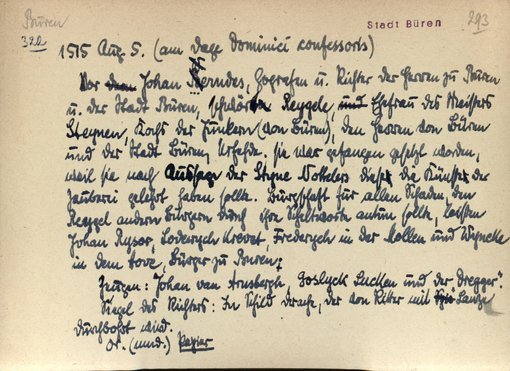 Büren
Stadt Büren
293
322
1515 Aug 5. (am Dage Dominici confessoris)
Vor dem Johan Sterndes, Gografen u. Richter der Herren zu Büren
u. der Stadt Büren, schwören Reggele, und Ehefrau des Meisters
Steynen Kochs der Junkern (von Büren), den Herren von Büren
und der Stadt Büren, Urfehde, sie war gefangen gesetzt worden,
weil sie nach Aussage der Styne Nottelers dieser die Künste der
Zauberei gelehrt haben sollte. Bürgschaft für allen Schaden, den
Reggel andern Bürgern durch ihre Scheltworte antun sollte, leisten
Johan Rysor, Loderych Krevet, Frederych in der Mollen und
in dem Hove, Bürger zu Buren;
Zeugen: Johan van Arnsbergh, Goslyck Lucken und der "Dregger".
Siegel des Richters: In Schild Drache, der von Ritter mit Lanze
durchbohrt wird.
Or. (mnd.) Papier